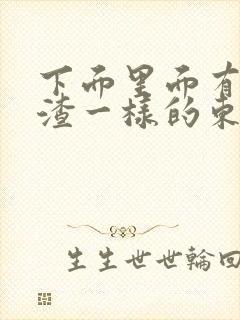 下面里面有
渣一樣的東
生生世世輪回